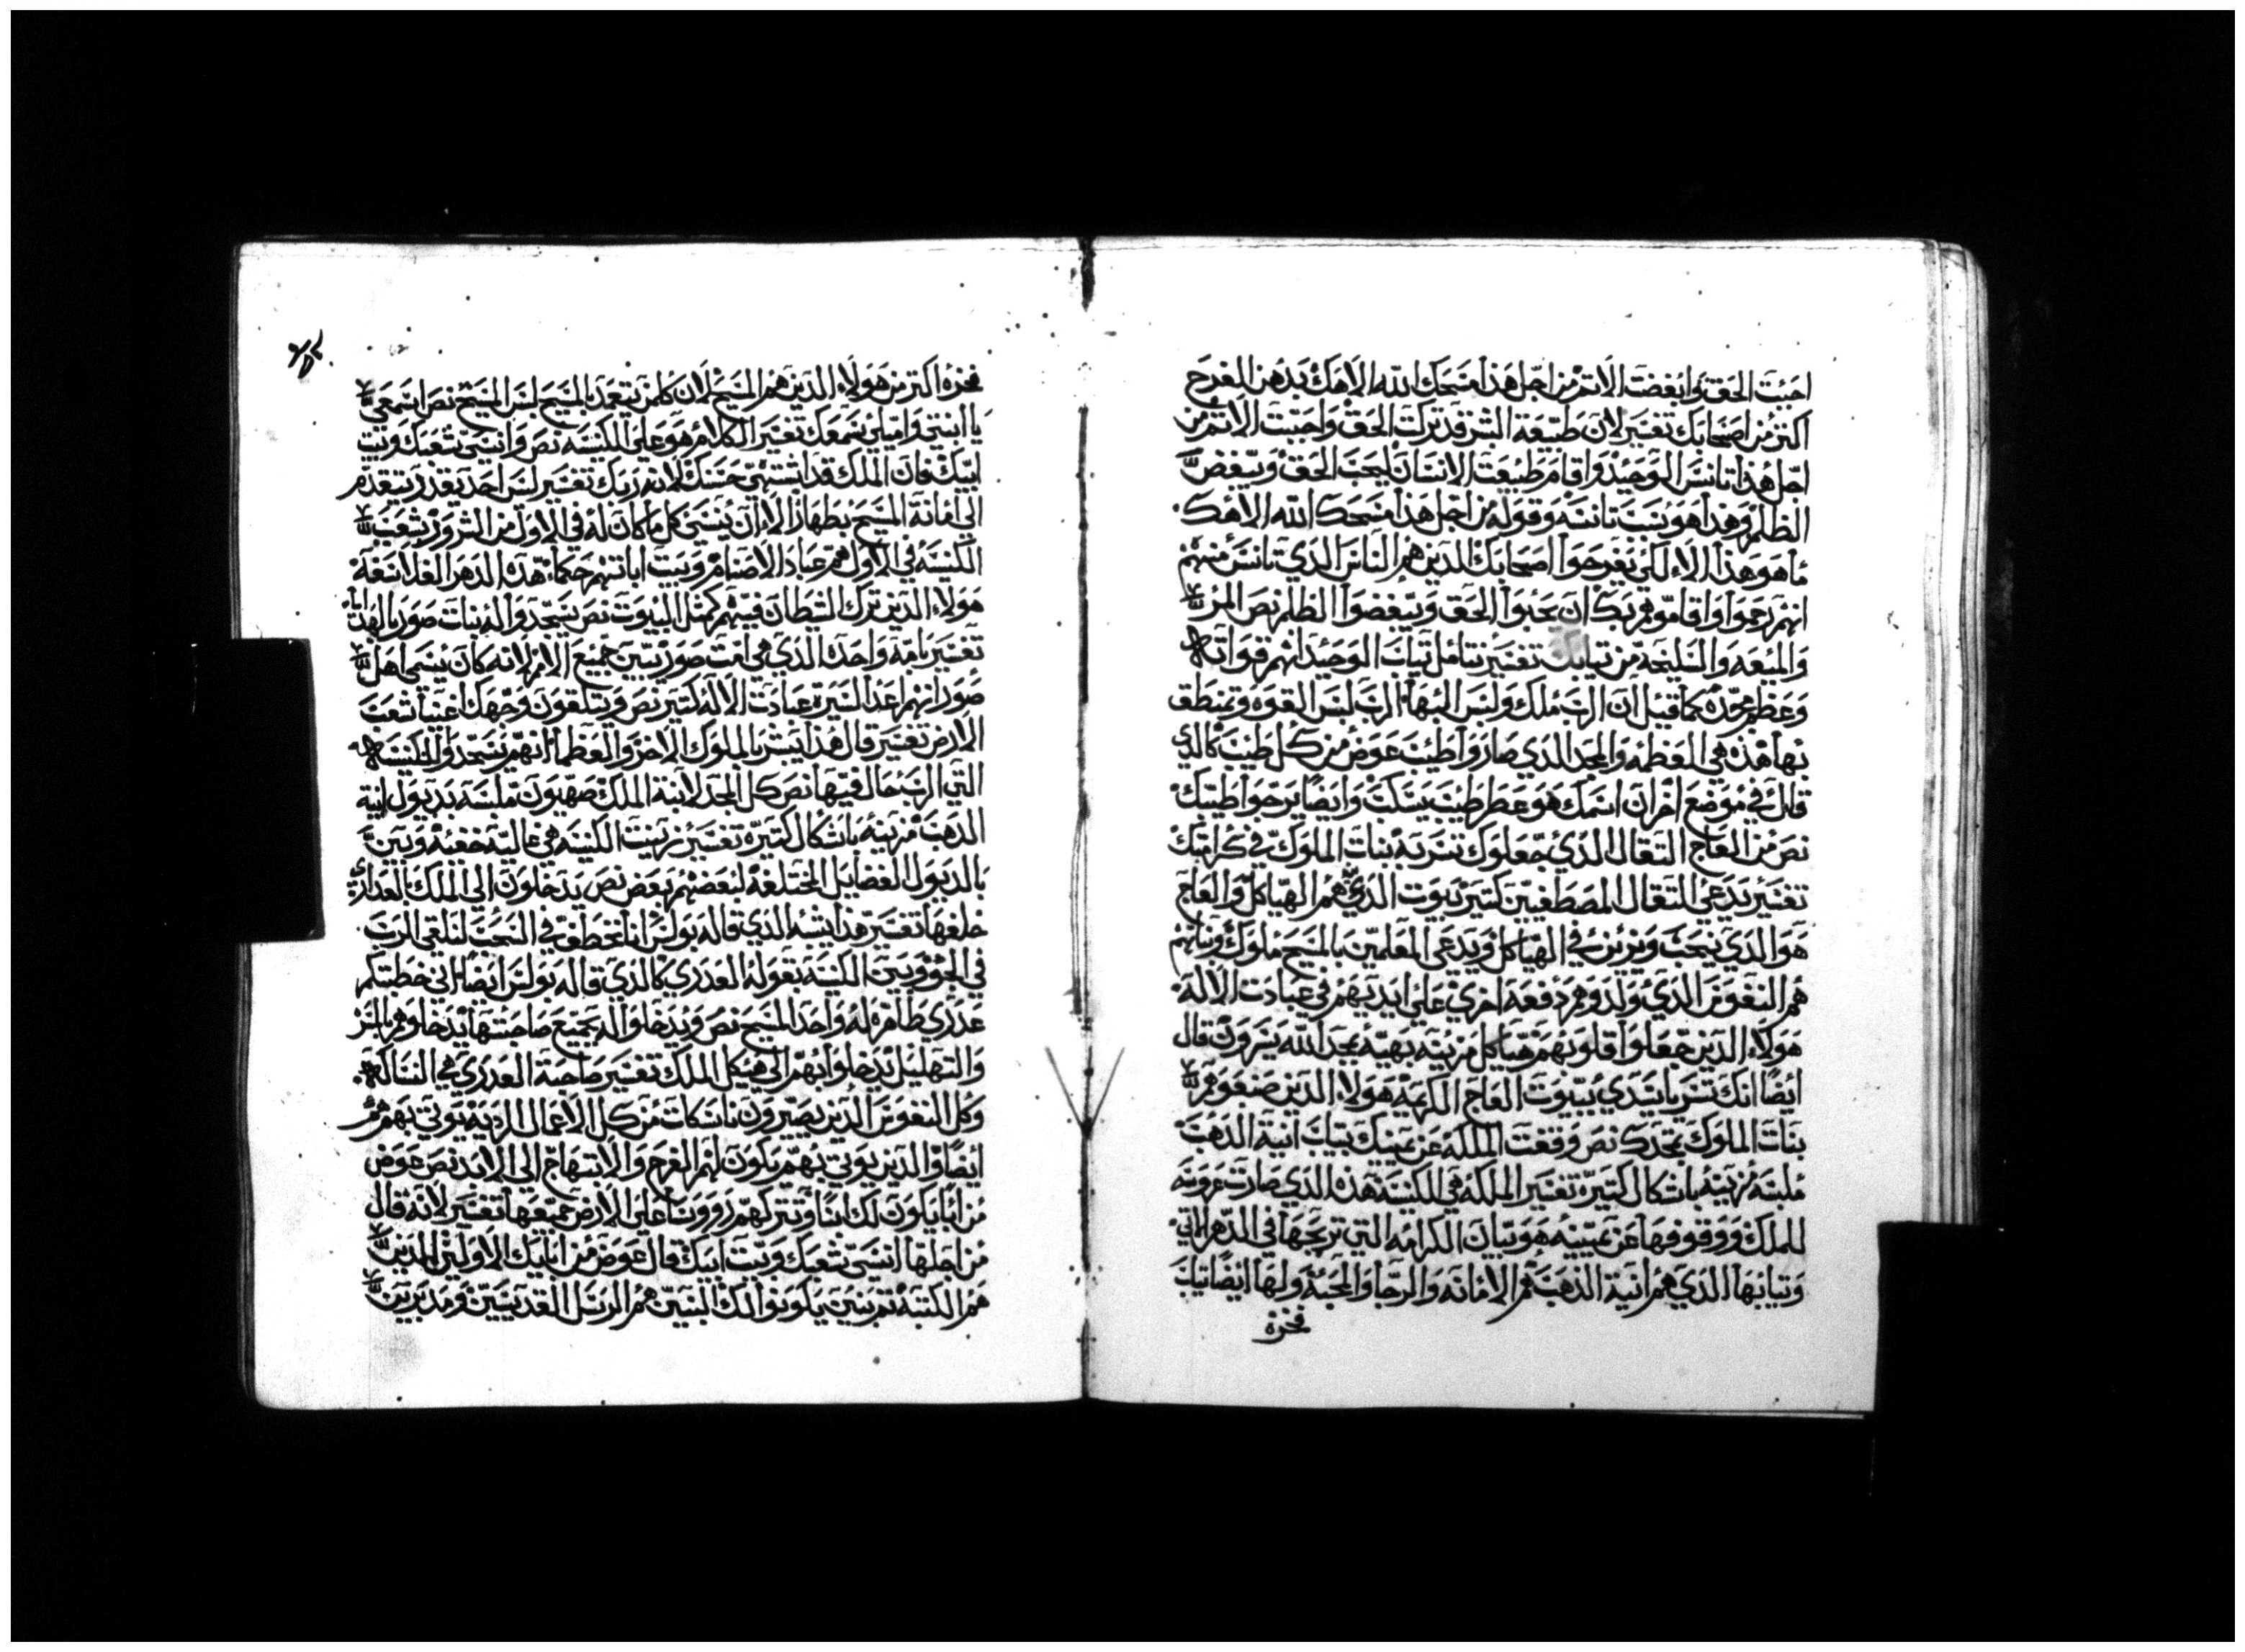 احببت الحق وابغضت الاتم من اجل هذا مسحك الله الاهك بدهن الفرح
اكتر من اصحابك تفسير لان طبيعة البشر قد تركت الحق واحبت الاتم من
اجل هذا تانس الوحيد واقام طبيعت الانسان ليحب الحق ويبغض
الظلم وهذا هو سبب تانسه وقوله من اجل هذا مسحك الله الاهك
ما هو هذا الا لكي يفرحوا اصحابك الدين هم الناس الدي تانس منهم
انهم رحموا واقاموهم بك ان يحبوا الحق ويبغضوا الظلم نص المر
والميعه والسليخة من تيابك تفسير نتامل تياب الوحيد انهم قواته
وعظم مجده كما قيل ان الرب ملك ولبس البها الرب لبس القوه وتمنطق
بها هذه هي العظمه والمجد الدي صار واطيب عوض من كل طيب كالدي
قال في موضع اخر ان اسمك هو عطر طيب يسكب وايضا يرجوا طيبك
نص من العاج التقال الدي جعلوك تسر به بنات الملوك في كرامتك
تفسير يدعي التقال المصطفيين كتير بيوت الدي هم الهياكل والعاج
هو الدي ينحب ويزين في الهياكل ويدعي المعلمين بالمسيح ملوك وبناتهم
هم النفوس الدي ولدوهم دفعه اخري علي ايديهم في عبادت الاله
هولاء الدين جعلوا قلوبهم هياكل مزينه بهيه بمجد الله يسرون قال
ايضا انك تسر ياسيدي ببيوت العاج الكريمه هولاء الدين صنعوهم
بنات الملوك بمجدك نص وقفت الملكه عن يمينك بتياب انية الدهب
ملبسه مزينه باشكال كتيره تفسير الملكه هي الكنيسة هذه الدي صارت عروسه
للملك ووقوفها عن يمينه هو بيان الكرامه التي تربحها في الدهر الاتي
وتيابها الدي هم انية الدهب هم الامانه والرجا والمحبه ولها ايضا تياب
فخره
فخره اكتر من هولاء الدين هم المسيح لان كلمن يتعمد بالمسيح لبس المسيح نص اسمعي
يا ابنتي واميلي سمعك تفسير الكلام هو علي الكنيسه نص وانسي شعبك وبيت
ابيك فان الملك قد اشتهي حسنك لانه ربك تفسير ليس احد يقدر يتقدم
الي امانة المسيح بطهاره الا ان ينسي كل ما كان له في الاول من الشرور شعب
الكنيسه في الاول هم عباد الاصنام وبيت اباتهم حكما هذه الدهر الفلاسفه
هولاء الدين ترك الشيطان فيهم كمتل البيوت نص يسجدوا له بنات صور بالهدايا
تفسير بامة واحده الدي هي امت صور يبين جميع الامم لانه كان يسمي اهل
صور انهم اعدا لسيرة عبادت الاله كتير نص ويتلقون وجهك اغنيا شعب
الارض تفسير قال هذا يبشر بالملوك الاخر والعظما انهم يسجدوا للكنيسه
التي الرب حال فيها نص كل المجد لابنة الملك صهيون ملبسه بديول انية
الدهب مزينه باشكال كتيره تفسير زينت الكنيسه هي عاليه خفيه وبين
بالديول الفضايل المختلفه لبعضهم بعض نص يدخلون الي الملك بالعداري
خلفها تفسير هذا يشبه الدي قاله بولس انا نخطف في السحب لنلقي الرب
في الجو وبين الكنيسه بقوله العدري كالدي قاله بولس ايضا اني خطبتكم
عدري طاهره له واحد المسيح نص ويدخلوا له بجميع صاحبتها يدخلوهم بالسر
والتهليل يدخلوا بهم الي هيكل الملك تفسير صاحبة العدري هي النساك
وكل النفوس الدين يصيرون ناسكات من كل الاعمال الرديه يوتي بهم هم
ايضا والدين يوتي بهم يكون لهم الفرح والابتهاج الي الابد نص عوض
من ابايكون لك بنا وتتركهم روونسا علي الارض جميعها تفسير لانه قال
من اجلها انسي شعبك وبيت ابيك قال عوض من ابايك الاولين الدين
هم الكتبه تم بنين يكونوا لك البنين هم الرسل القديسين ومدبرين